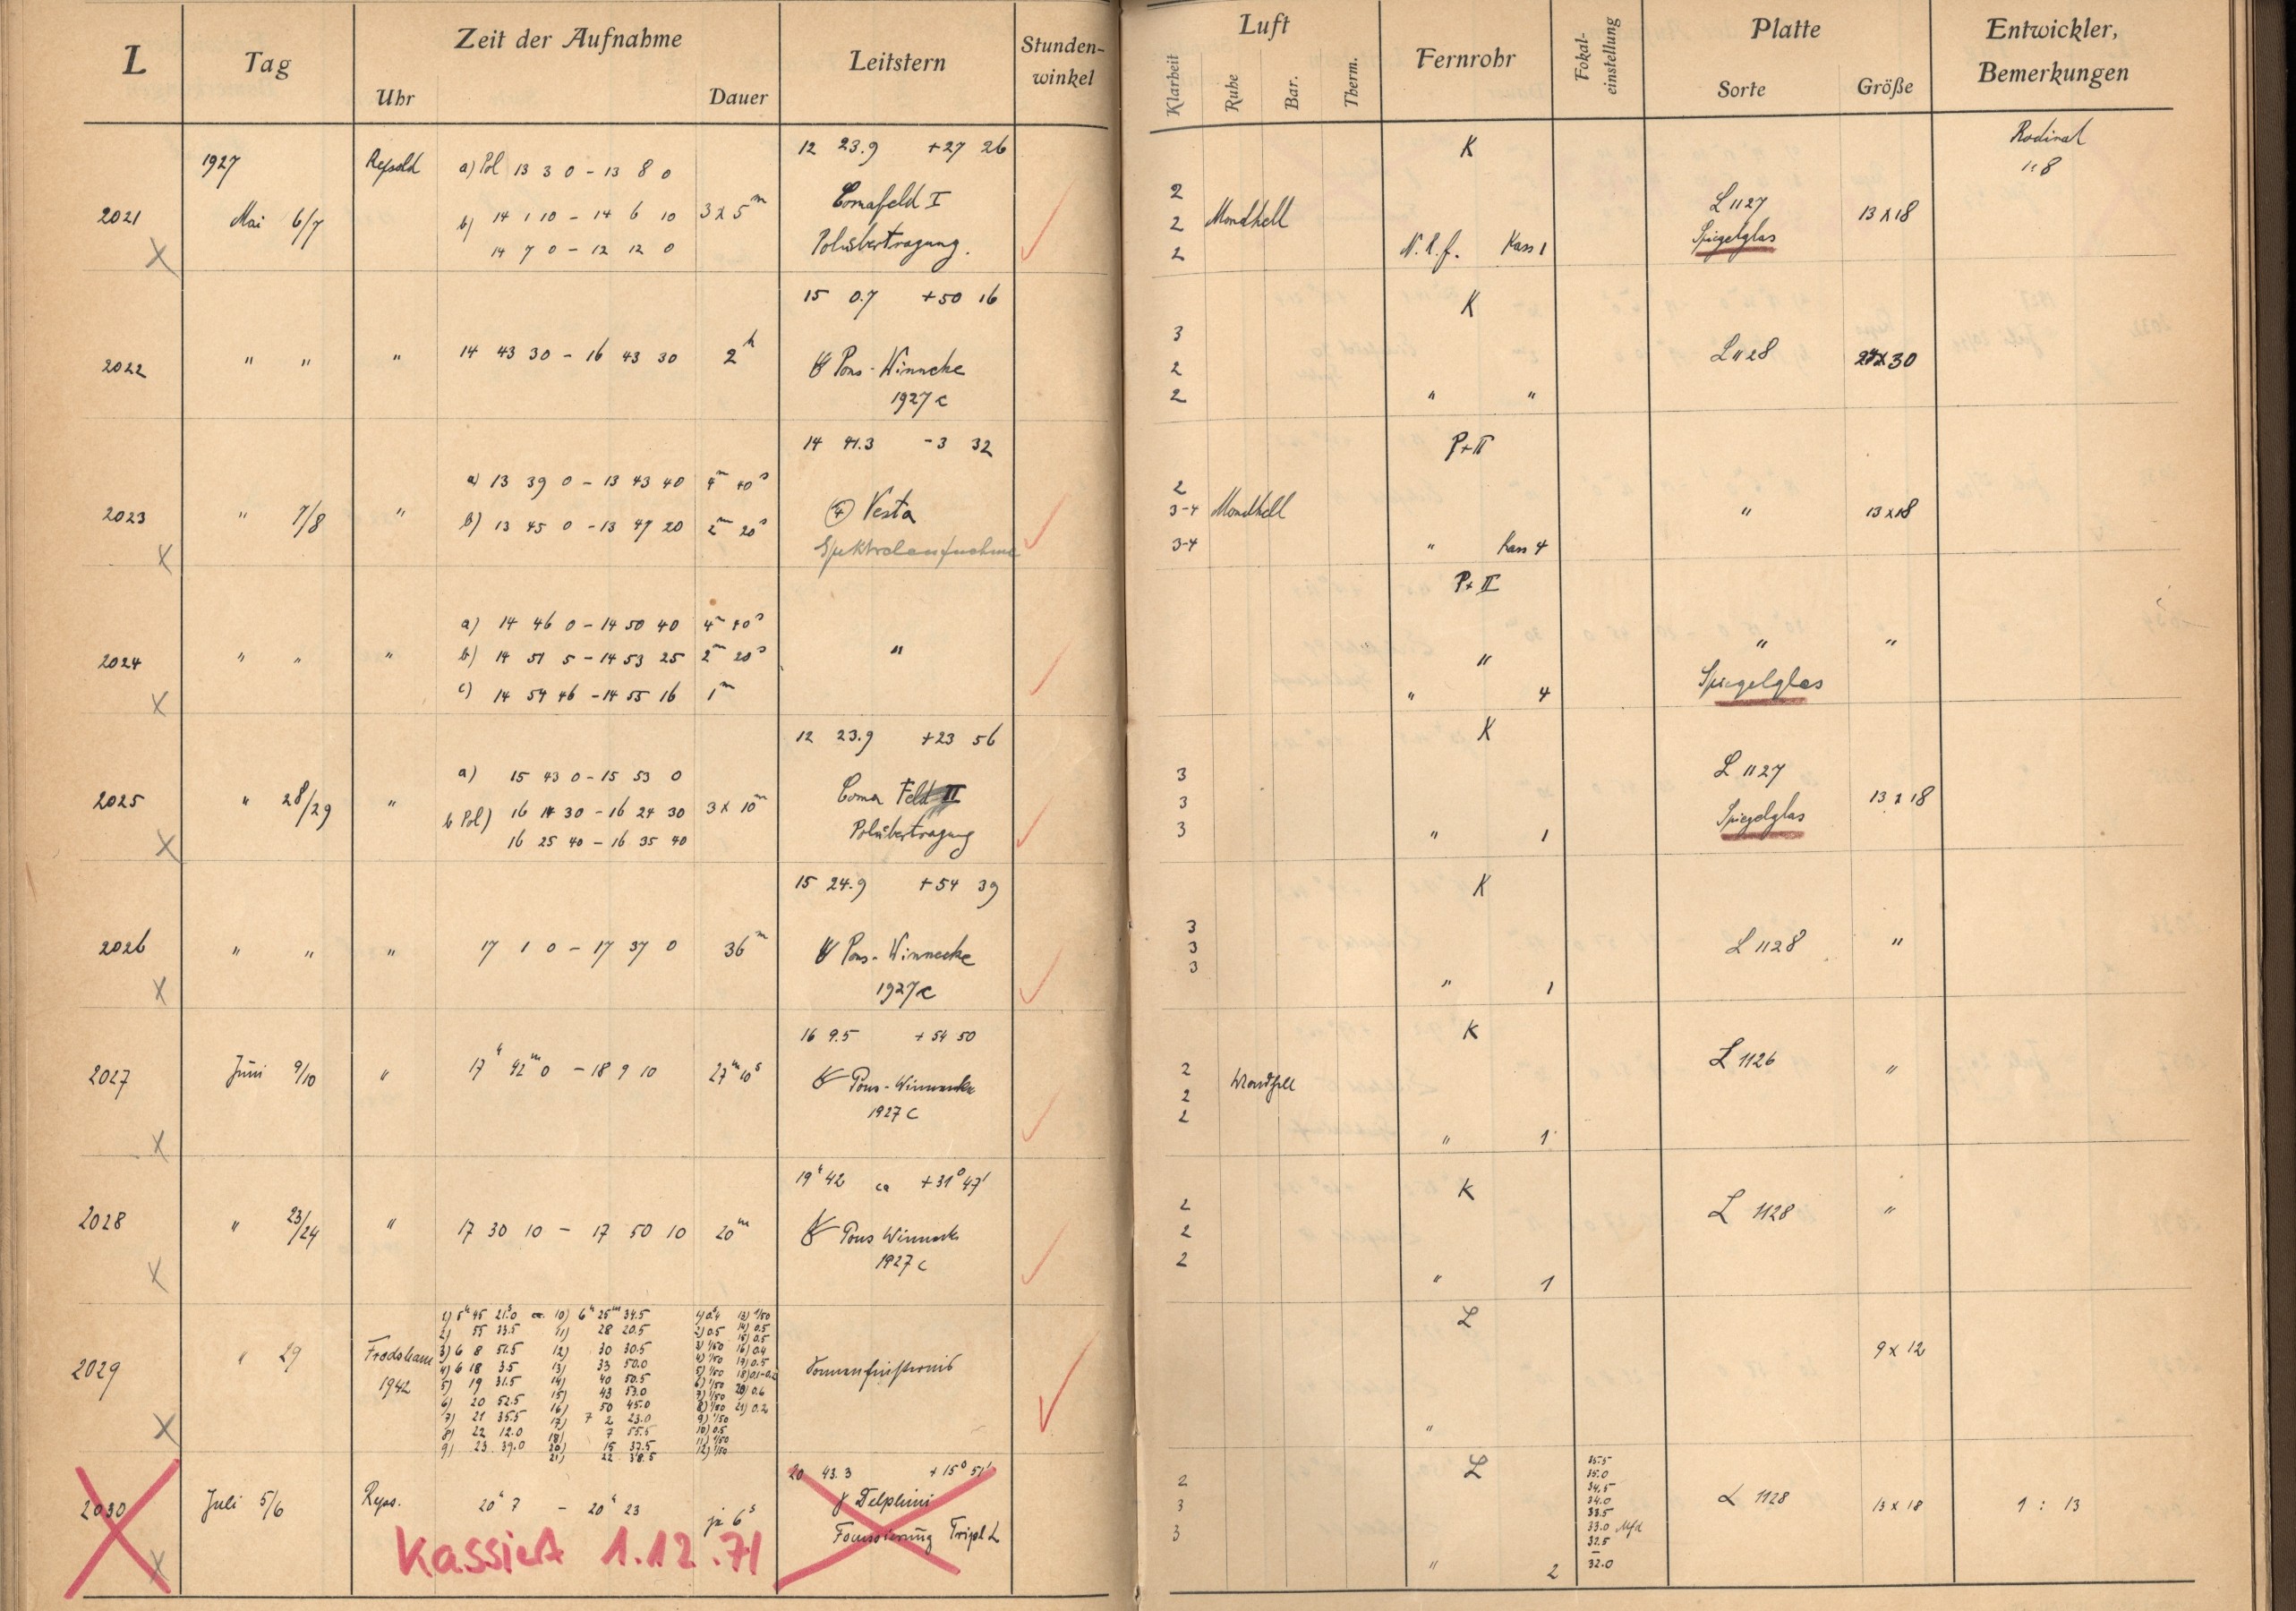 L Tag Zeit der Aufnahme Leitstern Stunden-winkel
Uhr Dauer
Luft Fernrohr Fokal-einstellung Platte Entwickler, Bemerkungen
Klarheit Ruhe Bar. Therm. Sorte Größe
1927 Repsold a) Pol 13 3 0 - 13 8 0 12 23.9 +27 26 K Rodinal
1:8
2021 Mai 6/7 b) 14 1 10 - 14 6 10 3 x 5m Comafeld I 2 L 1127 13 x 18
14 7 0 - 12 12 0 Polübertragung. 2 Mondhell Spiegelglas
X 2 N. R. f. Kass 1
15 0.7 +50 16 K
2022 " " " 14 43 30 - 16 43 30 2h Pons-Winnecke 3 L 1128 24x30
1927 c 2
2 " "
14 41.3 -3 32 P+II
a) 13 39 0 - 13 43 40 4m 40s 2
2023 " 7/8 " b) 13 45 0 - 13 47 20 2m 20s (4) Vesta 3-4 Mondhell " 13x18
X Spektralaufnahme 3-4 " Kass 4
P+II
a) 14 46 0 - 14 50 40 4m 40s
2024 " " " b) 14 51 5 - 14 53 25 2m 20s " " " "
X c) 14 54 46 - 14 55 16 1m " 4 Spiegelglas
12 23.9 +23 56 K
a) 15 43 0 - 15 53 0 3 L 1127
2025 " 28/29 " b Pol) 16 14 30 - 16 24 30 3 x 10m Coma Feld II 3 13 x 18
X 16 25 40 - 16 35 40 Polübertragung 3 " 1 Spiegelglas
15 24.9 +54 39 K
2026 " " " 17 1 0 - 17 37 0 36m Pons-Winnecke 3 L 1128 "
3
X 1927 c 3 " 1
16 9.5 +54 50 K
2027 Juni 9/10 " 17h 42m 0 - 18 9 10 27m 10s Pons-Winnecke 2 Mondhell L 1126 "
1927 c 2
X 2 " 1
19h 42 ca +31° 47' K
2028 " 23/24 " 17 30 10 - 17 50 10 20m Pons Winneck 2 L 1128 "
1927 c 2
X 2 " 1
2029 " 29 Frodsham 1942 Sonnenfinsternis L 9 x 12
1) 5h 45 21.0 10) 6h 25m 34.5 1) 0.4 13) 1/50
2) 55 33.5 11) 28 20.5 2) 0.5 14) 0.5
3) 6 8 51.5 12) 30 30.5 3) 1/50 16) 0.4
4) 6 18 3.5 13) 33 50.0 4) 1/50
5) 19 31.5 14) 40 50.5 5) 1/50
6) 20 52.5 15) 43 53.0 6) 1/50 20) 0.6
7) 21 35.5 16) 50 45.0 7) 1/50 21) 0.2
8) 22 12.0 17) 7 2 23.0 8) 1/50
9) 23 39.0 18) 7 55.5 9) 1/50
20) 15 37.5 10) 0.5
21) 22 38.5 11) 1/50
12) 1/50
X "
20 43.3 +15° 51' L 35.5
35.0
34.5
2030 Juli 5/6 Reps. 20h 7 - 20h 23 je 6s γ Delphini 2 34.0 L 1128 13 x 18 1 : 13
Foussierung Tripl L 3 33.5
33.0
3 32.5
X " 2 32.0
Kassiert 1.12.71